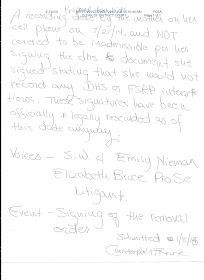 A recording done by mother on her
cell phone on 7/21/14, and NOT
covered to be inadmissible per her
signing the dhs document she
signed stating that she would not
record any DHS or FSRP interac-
tions. These signatures have been
officially & legally rescinded as of
this date
Voices - S.W. 4 Emily Nieman
Elizabeth Bruce Pro Se
Litigant.
Event - Signing of the removal
order
Submitted 1/5/15